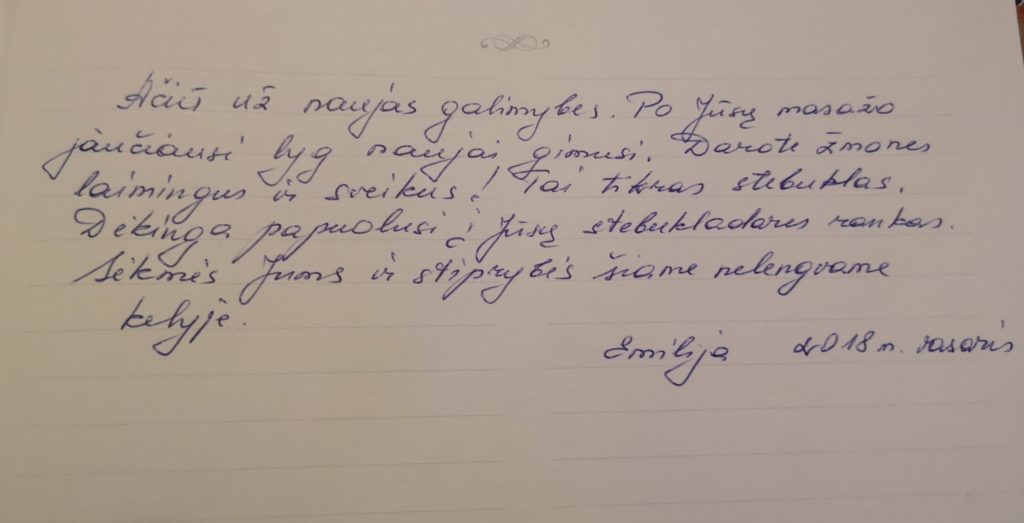 Ačiū už naujas galimybes. Po Jūsų masažo
jaučiausi lyg naujai gimusi. Darote žmones
laimingus ir sveikus! Tai tikras stebuklas.
Dėkinga papuolusi į Jūsų stebukladares rankas.
Sėkmės Jums ir stiprybės šiame nelengvame
kelyje.
Emilija 2018 m. vasaris